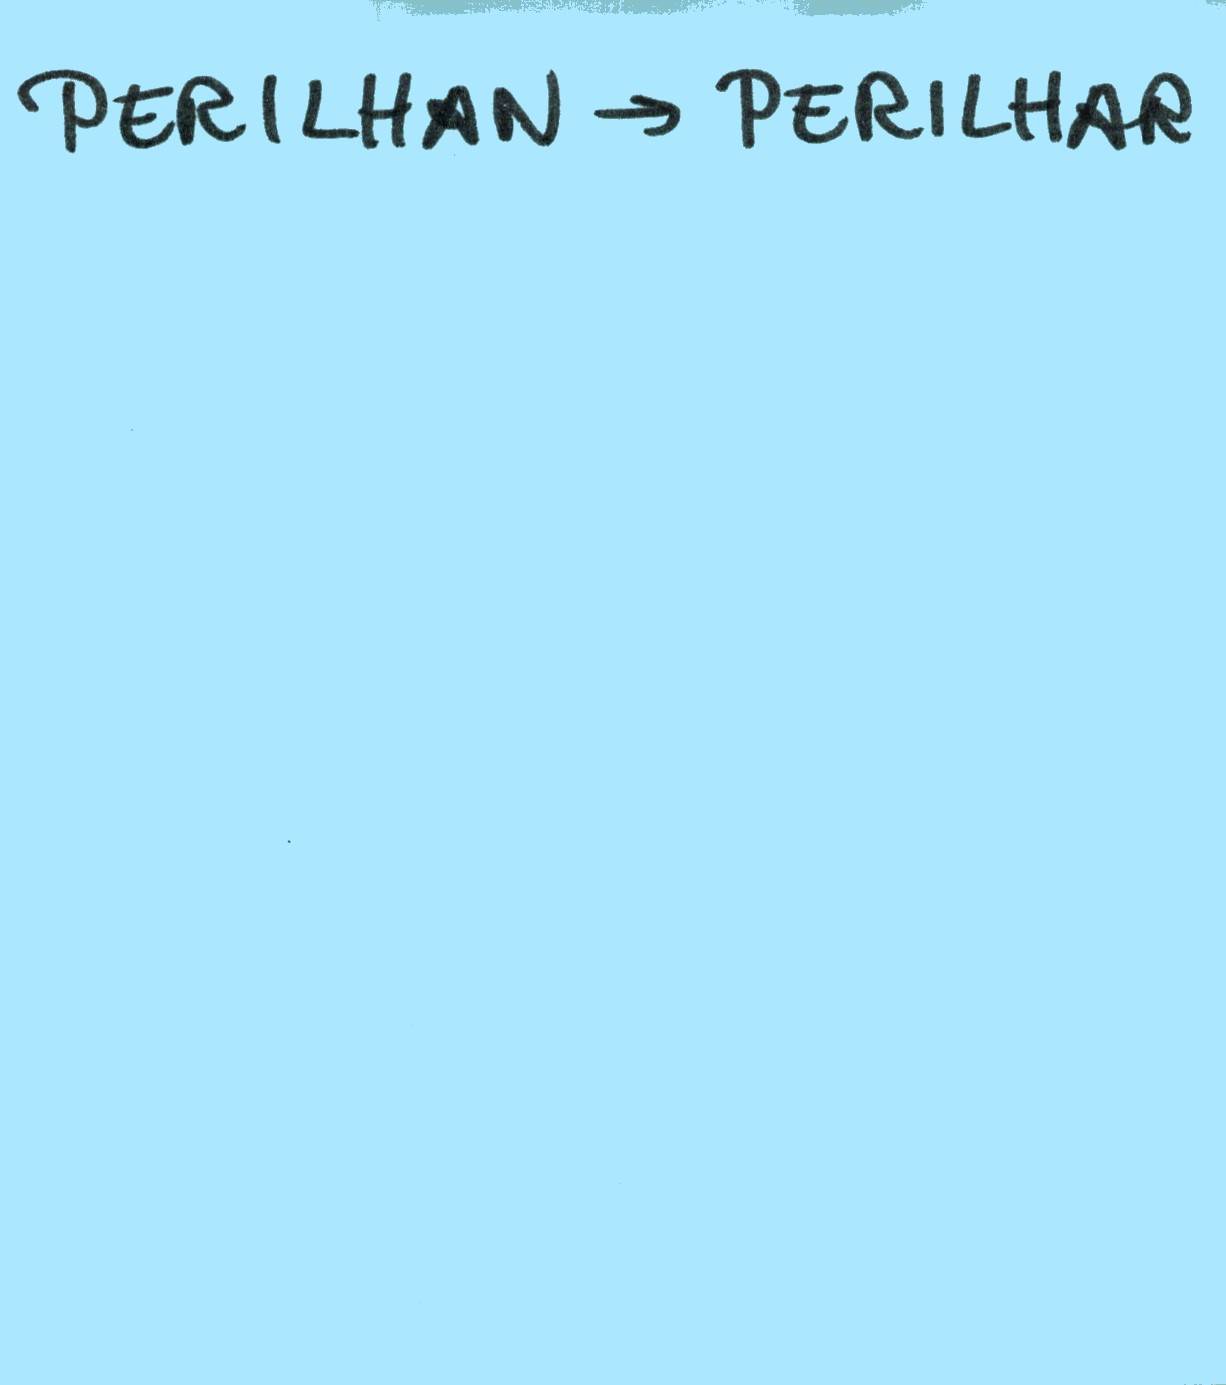 PERILHAN → PERILHAR